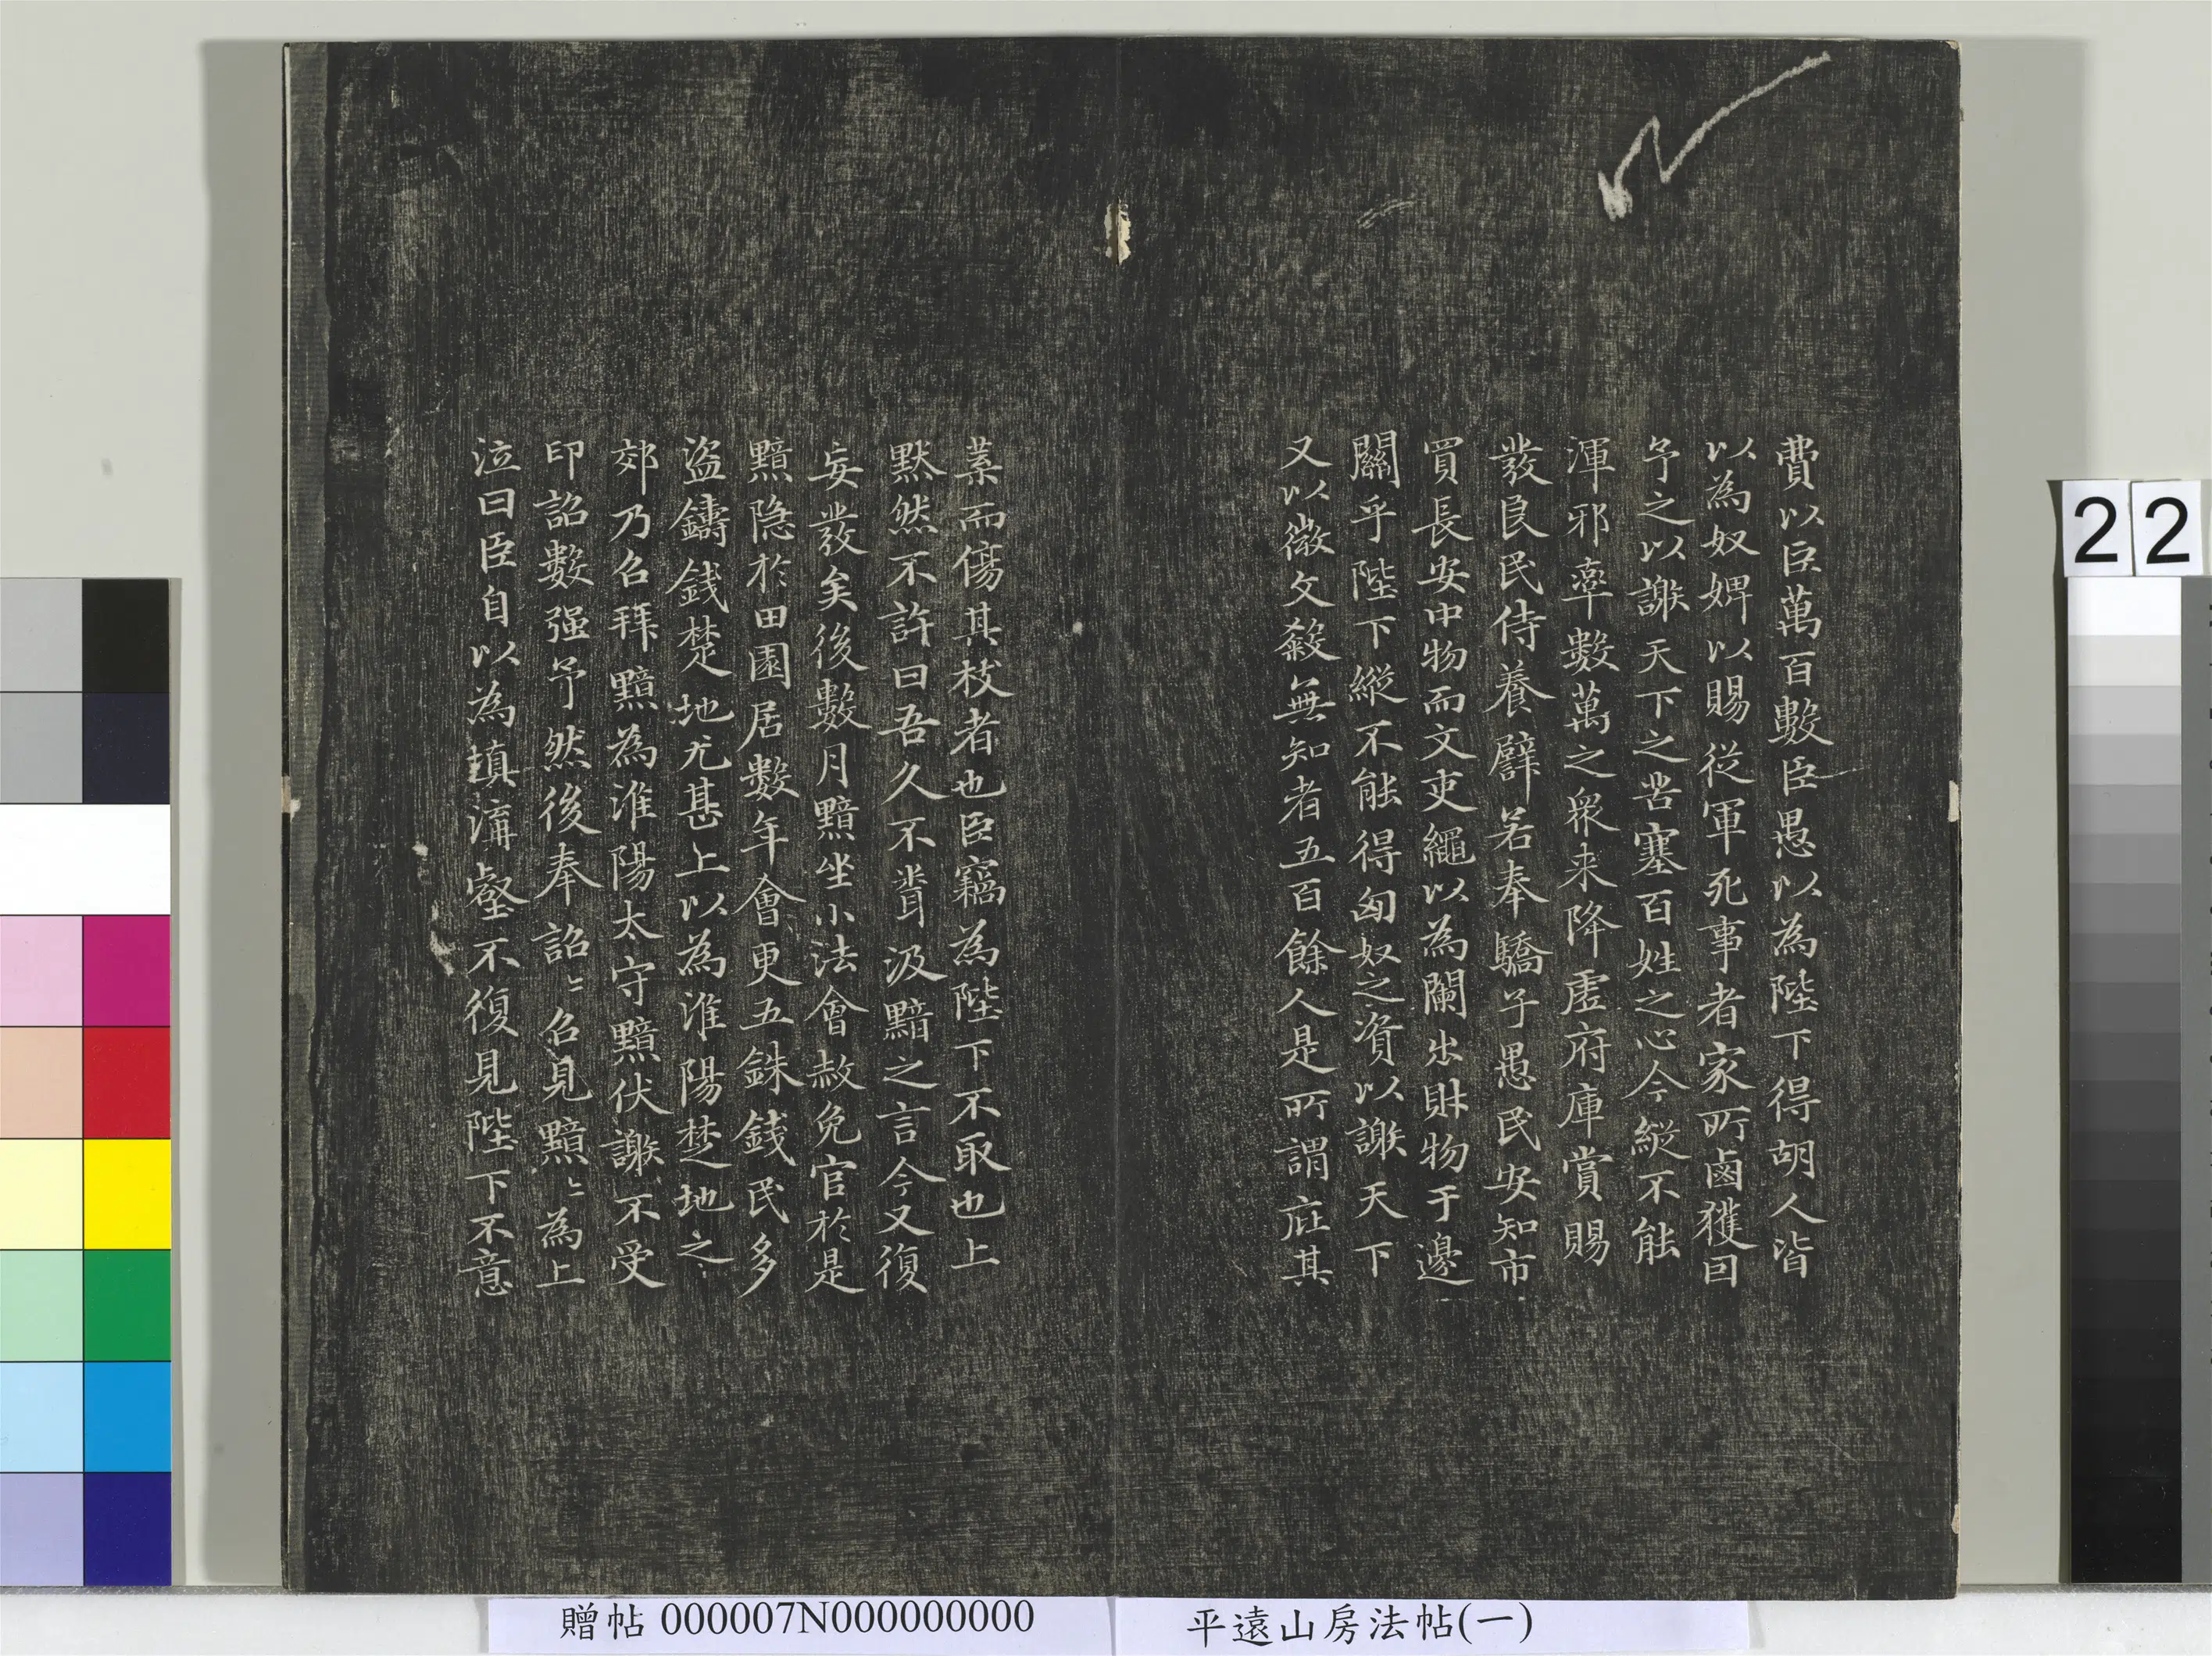 費以巨萬百數臣愚以為陛下得胡人皆
以為奴婢以賜從軍死事者家所鹵獲因
予之以謝天下之苦塞百姓之心今縱不能
渾邪率數萬之衆来降虛府庫賞賜
發良民侍養譬若奉驕子愚民安知市
買長安中物而文吏繩以為闌出財物于邊
關乎陛下縱不能得匈奴之資以謝天下
又以微文殺無知者五百餘人是所謂庇其
葉而傷其枝者也臣竊為陛下不取也上
默然不許曰吾久不聞汲黯之言今又復
妄發矣後數月黯坐小法會赦免官於是
黯隐於田園居數年會更五銖錢民多
盜鑄錢楚地尤甚上以為淮陽楚地之
郊乃召拜黯為淮陽太守黯伏謝不受
印詔數强予然後奉詔〻召見黯〻為上
泣曰臣自以為填溝壑不復見陛下不意
22
贈帖 000007N000000000
平遠山房法帖(一)